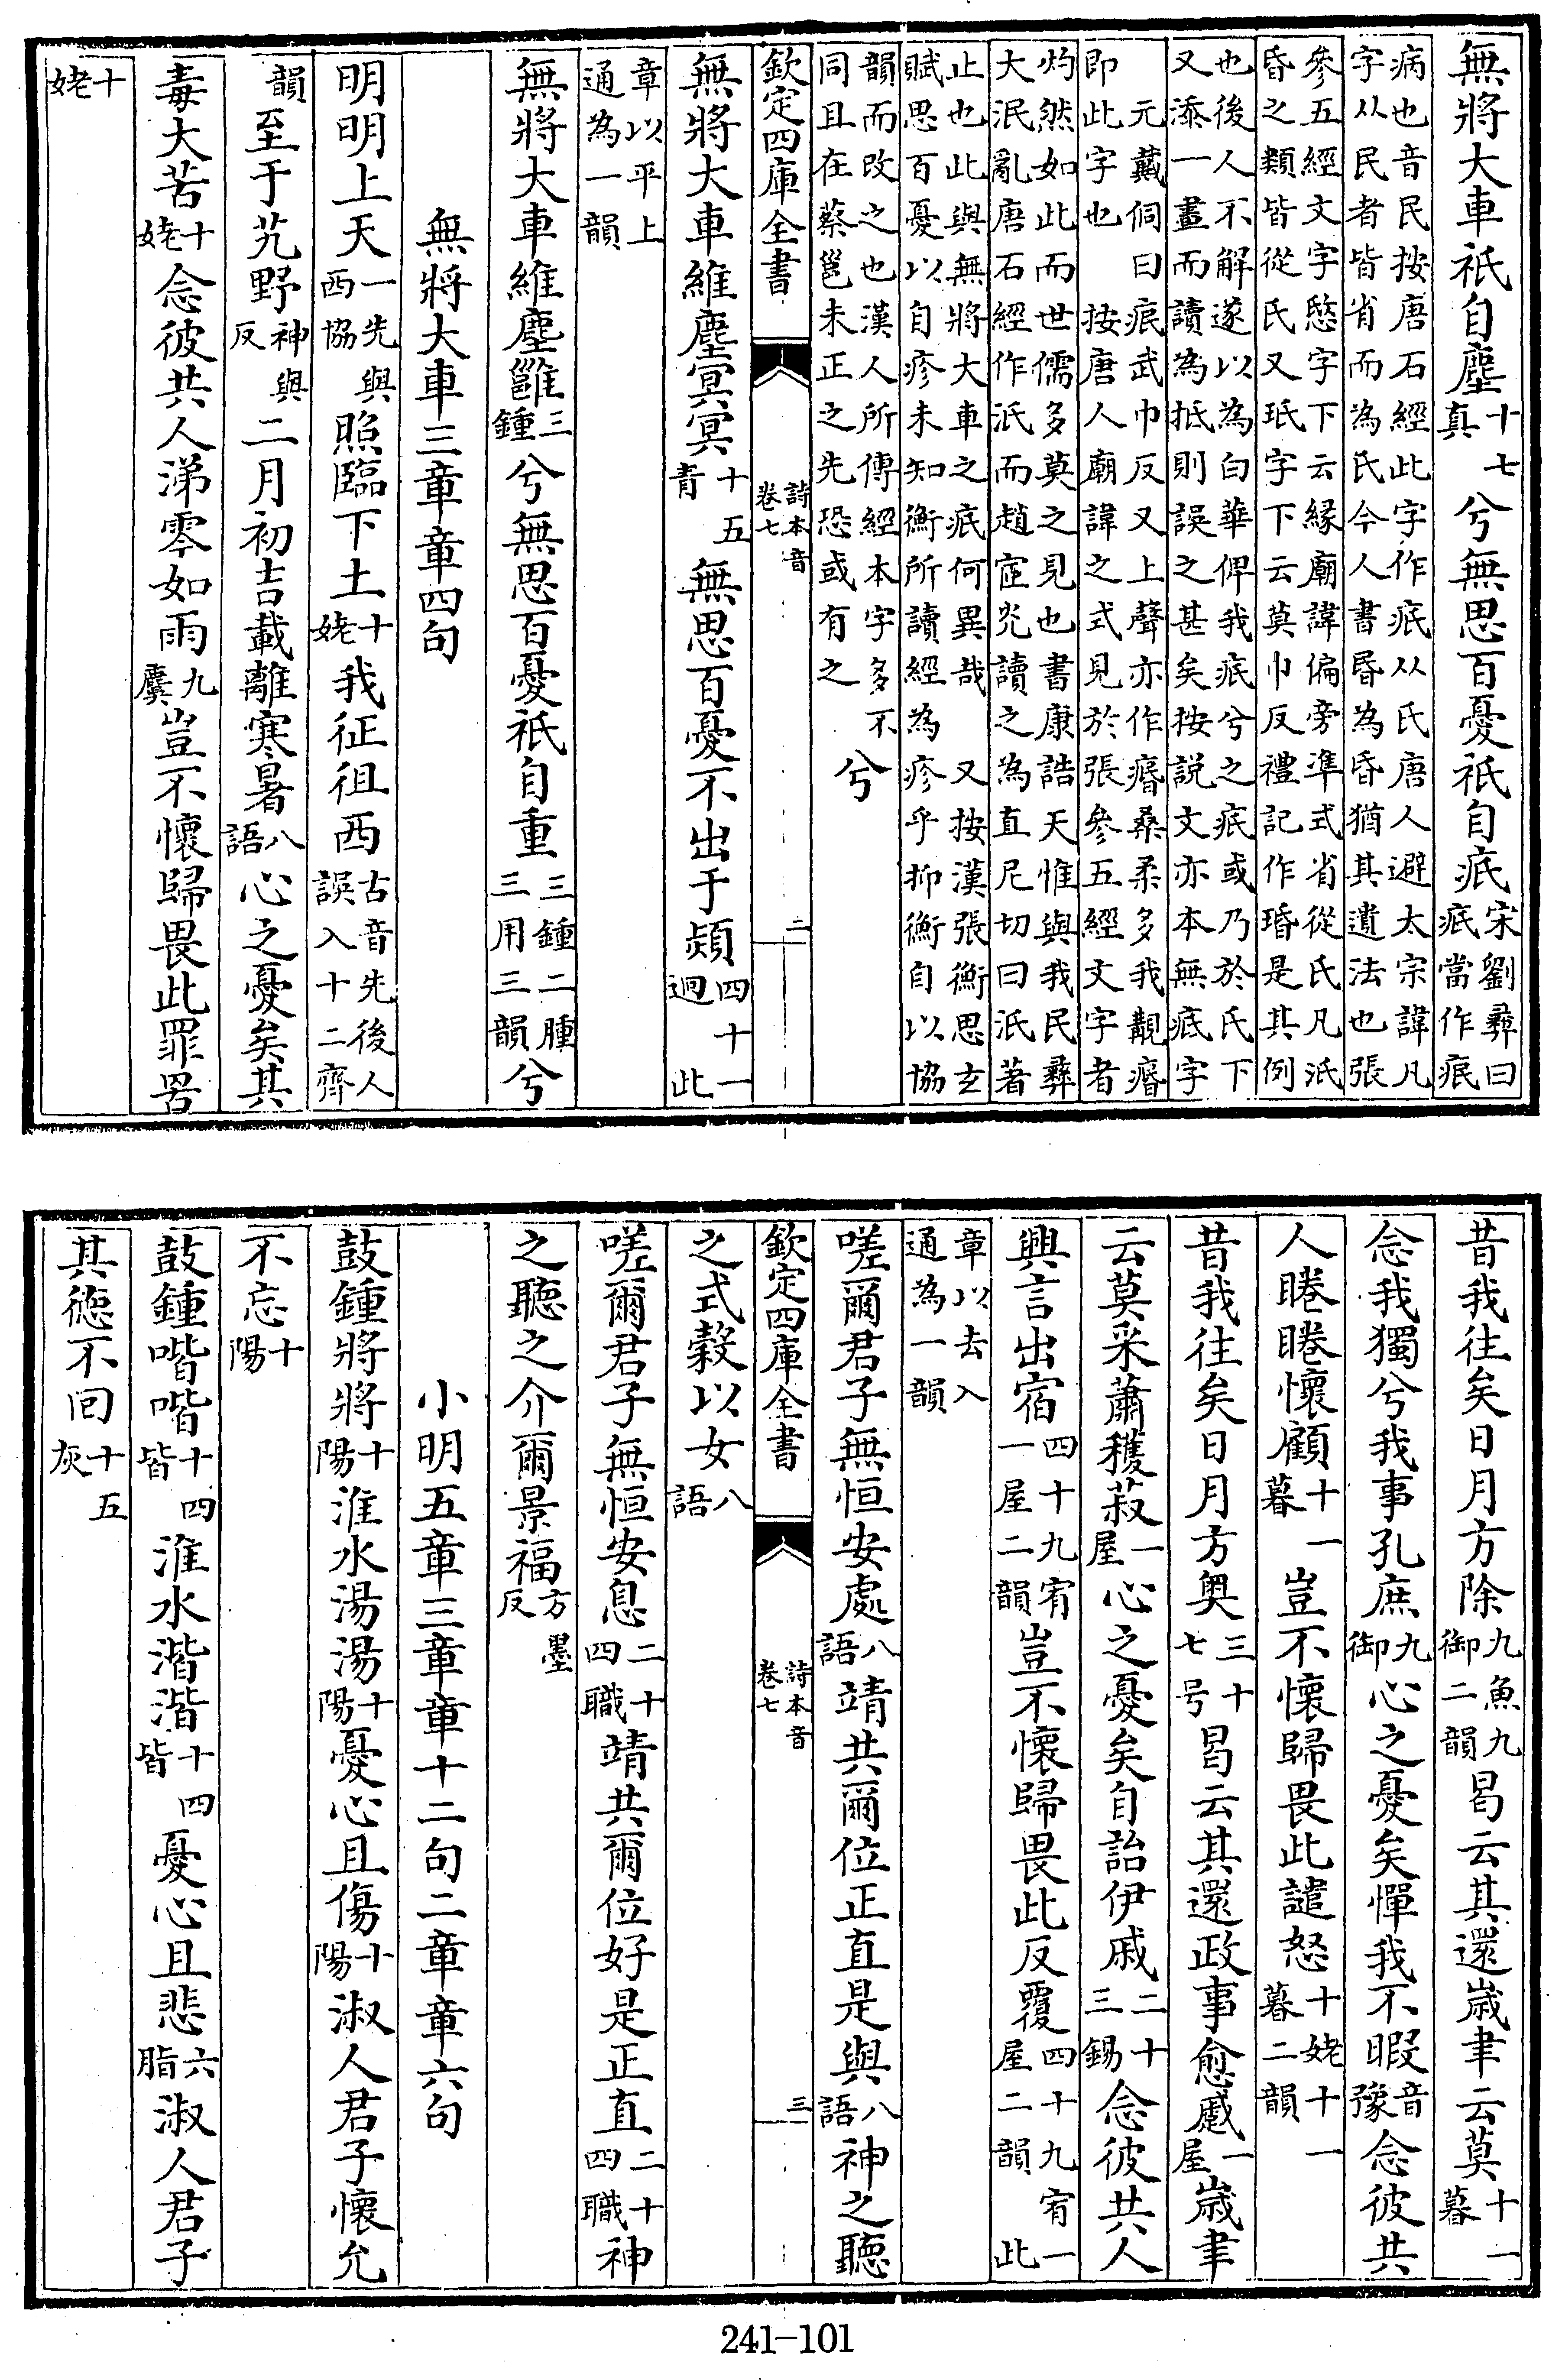 無將大車祇自塵十七真兮無思百憂祇自疧宋劉彞曰疧當作痕
病也音民按唐石經此字作疧从氏唐人避太宗諱凡
字从民者皆省而為氏今人書昬為昏猶其遺法也張
參五經文字愍字下云緣廟諱偏旁凖式省從氏凡汦
昏之類皆從氏又珉字下云莫巾反禮記作瑉是其例
也後人不解遂以為白華俾我疧兮之疧或乃於氏下
又添一畫而讀為抵則誤之甚矣按説文亦本無疷字
元戴侗曰痕武巾反又上聲亦作痻桑柔多我覯痻
即此字也 按唐人廟諱之式見於張參五經文字者
灼然如此而世儒多莫之見也書康誥天惟與我民彞
大泯亂唐石經作汦而趙宧光讀之為直尼切曰汦著
止也此與無將大車之疧何異哉 又按漢張衡思玄
賦思百憂以自疹未知衡所讀經為疹乎抑衡自以協
韻而改之也漢人所傳經本字多不
同且在蔡邕未正之先恐或有之 兮
欽定四庫全書 詩本音 卷七 二
無將大車維塵冥冥十五青無思百憂不出于熲四十一迥此
章以平上通為一韻
無將大車維塵雝三鍾兮無思百憂祇自重三鍾二腫三用三韻兮
無將大車三章章四句
明明上天一先與西協照臨下土十姥我征徂西古音先後人誤入十二齊
韻至于艽野神與反二月初吉載離寒暑八語心之憂矣其
毒大苦十姥念彼共人涕零如雨九麌豈不懷歸畏此罪罟
十姥
昔我往矣日月方除九魚九御二韻曷云其還歲聿云莫十一暮
念我獨兮我事孔庶九御心之憂矣憚我不暇音豫念彼共
人睠睠懷顧十一暮豈不懷歸畏此譴怒十姥十一暮二韻
昔我往矣日月方奧三十七号曷云其還政事愈蹙一屋歲聿
云莫采蕭穫菽一屋心之憂矣自詒伊戚二十三錫念彼共人
興言出宿四十九宥一屋二韻豈不懷歸畏此反覆四十九宥一屋二韻此
章以去入通為一韻
嗟爾君子無恒安處八語靖共爾位正直是與八語神之聽
欽定四庫全書 詩本音 卷七 三
之式穀以女八語
嗟爾君子無恒安息二十四職靖共爾位好是正直二十四職神
之聽之介爾景福方墨反
小明五章三章章十二句二章章六句
鼓鍾將將十陽淮水湯湯十陽憂心且傷十陽淑人君子懷允
不忘十陽
鼓鍾喈喈十四皆淮水湝湝十四皆憂心且悲六脂淑人君子
其德不回十五灰
241-101